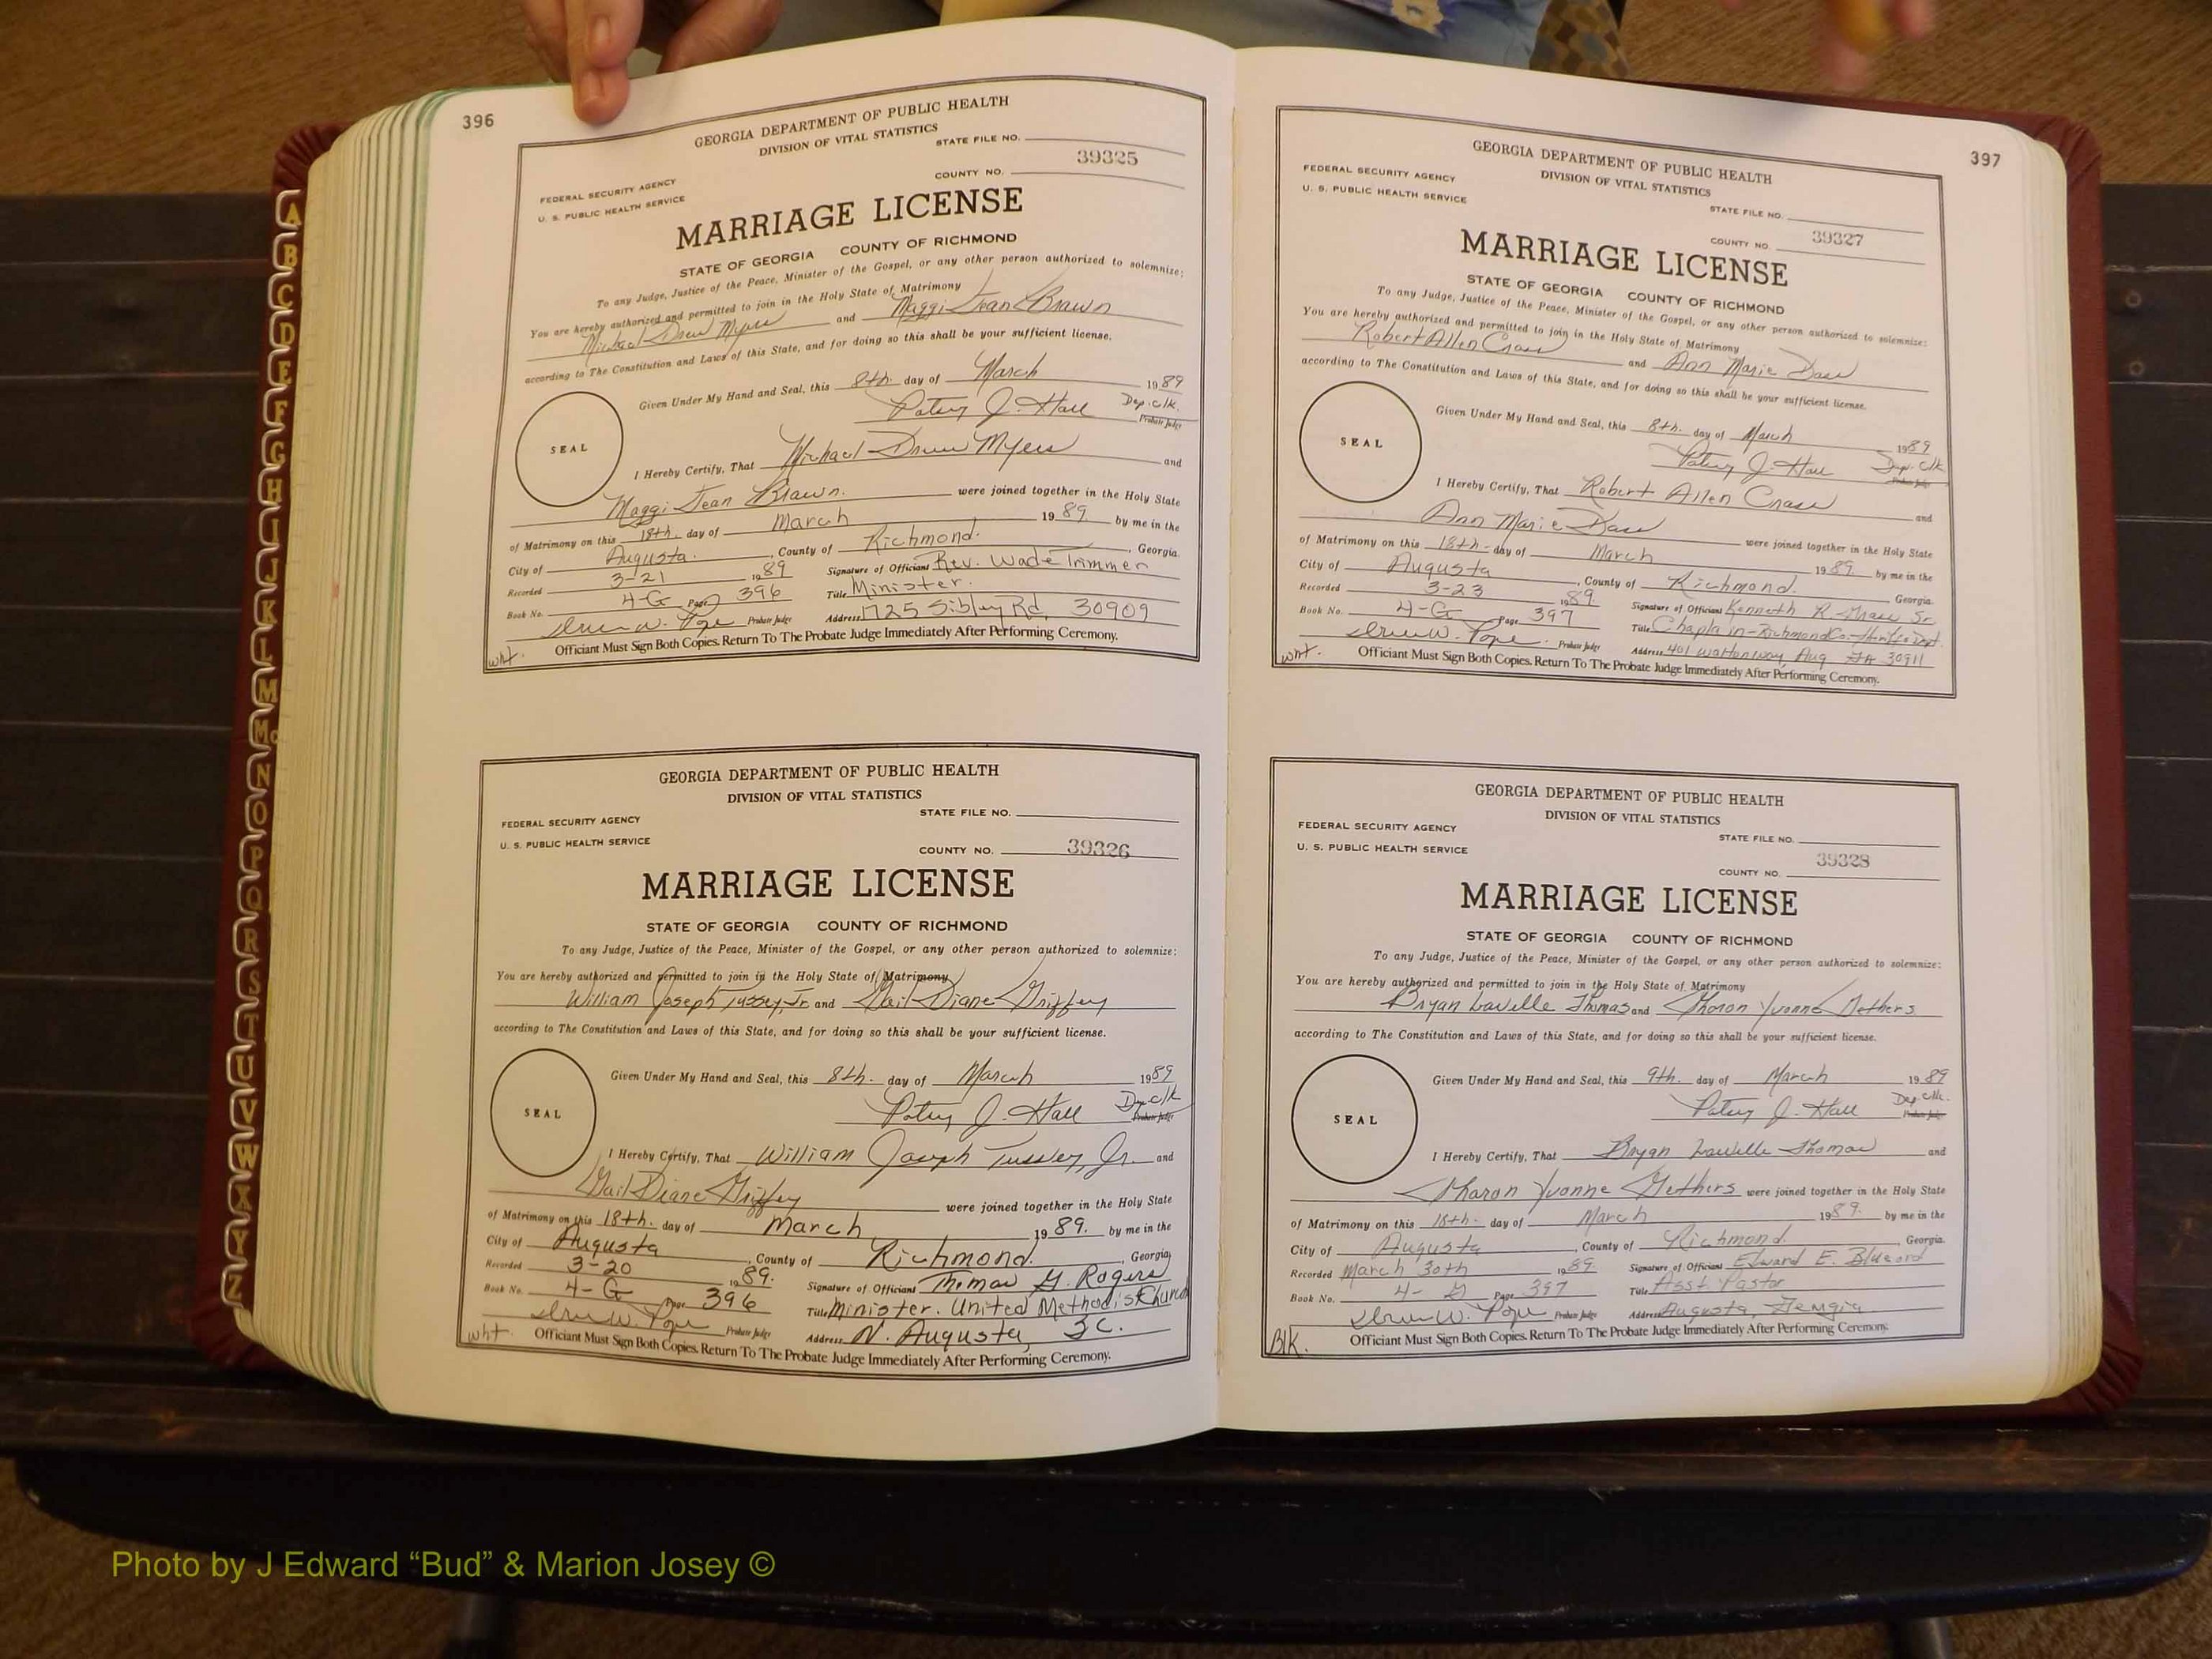 396
GEORGIA DEPARTMENT OF PUBLIC HEALTH
DIVISION OF VITAL STATISTICS
STATE FILE NO.
39325
COUNTY NO.
FEDERAL SECURITY AGENCY
U. S. PUBLIC HEALTH SERVICE
MARRIAGE LICENSE
STATE OF GEORGIA COUNTY OF RICHMOND
To any Judge, Justice of the Peace, Minister of the Gospel, or any other person authorized to solemnize:
You are hereby authorized and permitted to join in the Holy State of Matrimony
Michael Drew Myers and Maggi Jean Brawn
according to The Constitution and Laws of this State, and for doing so this shall be your sufficient license.
Given Under My Hand and Seal, this 8th. day of March 1989
Patsy J. Hall Dep. Clk.
Probate Judge
SEAL
I Hereby Certify, That Michael Drew Myers and
Maggi Jean Brawn. were joined together in the Holy State
of Matrimony on this 18th. day of March 1989 by me in the
City of Augusta. , County of Richmond. , Georgia.
Recorded 3-21 1989 Signature of Officiant Rev. Wade Trimmer
Book No. 4-G Page 396 Title Minister.
Probate Judge Address 1725 Sibley Rd. 30909
Officiant Must Sign Both Copies. Return To The Probate Judge Immediately After Performing Ceremony.
wht.
GEORGIA DEPARTMENT OF PUBLIC HEALTH
DIVISION OF VITAL STATISTICS
STATE FILE NO.
FEDERAL SECURITY AGENCY
U. S. PUBLIC HEALTH SERVICE
COUNTY NO. 39326
MARRIAGE LICENSE
STATE OF GEORGIA COUNTY OF RICHMOND
To any Judge, Justice of the Peace, Minister of the Gospel, or any other person authorized to solemnize:
You are hereby authorized and permitted to join in the Holy State of Matrimony
William Joseph Tussey, Jr. and Gail Diane Griffey
according to The Constitution and Laws of this State, and for doing so this shall be your sufficient license.
Given Under My Hand and Seal, this 8th. day of March 1989
Patsy J. Hall Dep. Clk
Probate Judge
SEAL
I Hereby Certify, That William Joseph Tussey, Jr. and
Gail Diane Griffey were joined together in the Holy State
of Matrimony on this 18th. day of March 1989. by me in the
City of Augusta , County of Richmond. , Georgia,
Recorded 3-20 1989. Signature of Officiant Thomas G. Rogers
Book No. 4-G Page 396 Title Minister. United Methodist Church
Probate Judge Address N. Augusta, SC.
Officiant Must Sign Both Copies. Return To The Probate Judge Immediately After Performing Ceremony.
wht.
397
GEORGIA DEPARTMENT OF PUBLIC HEALTH
DIVISION OF VITAL STATISTICS
FEDERAL SECURITY AGENCY
U. S. PUBLIC HEALTH SERVICE
STATE FILE NO.
COUNTY NO. 39327
MARRIAGE LICENSE
STATE OF GEORGIA COUNTY OF RICHMOND
To any Judge, Justice of the Peace, Minister of the Gospel, or any other person authorized to solemnize:
You are hereby authorized and permitted to join in the Holy State of Matrimony
Robert Allen and Ann Marie
according to The Constitution and Laws of this State, and for doing so this shall be your sufficient license.
Given Under My Hand and Seal, this 8th. day of March 1989
Patsy J. Hall Dep. Clk
Probate Judge
SEAL
I Hereby Certify, That Robert Allen and
Ann Marie were joined together in the Holy State
of Matrimony on this 18th- day of March 1989. by me in the
City of Augusta , County of Richmond. Georgia.
Recorded 3-23 1989. Signature of Officiant Kenneth R. Sr.
Book No. 4-G Page 397 Title Chaplain-Richmond Co. Sheriffs Dept
Probate Judge Address 401 Walton way, Aug GA 30911
Officiant Must Sign Both Copies. Return To The Probate Judge Immediately After Performing Ceremony.
wht.
GEORGIA DEPARTMENT OF PUBLIC HEALTH
DIVISION OF VITAL STATISTICS
FEDERAL SECURITY AGENCY
U. S. PUBLIC HEALTH SERVICE
STATE FILE NO.
39328
COUNTY NO.
MARRIAGE LICENSE
STATE OF GEORGIA COUNTY OF RICHMOND
To any Judge, Justice of the Peace, Minister of the Gospel, or any other person authorized to solemnize:
You are hereby authorized and permitted to join in the Holy State of Matrimony
Bryan LaVelle Thomas and Sharon Yvonne Gethers
according to The Constitution and Laws of this State, and for doing so this shall be your sufficient license.
Given Under My Hand and Seal, this 9th. day of March 1989
Patsy J. Hall Dep. Clk.
Probate Judge
SEAL
I Hereby Certify, That Bryan LaVelle Thomas and
Sharon Yvonne Gethers were joined together in the Holy State
of Matrimony on this 18th. day of March 1989. by me in the
City of Augusta , County of Richmond , Georgia.
Recorded March 30th 1989. Signature of Officiant Edward E.
Book No. 4-G Page 397 Title Asst. Pastor
Probate Judge Address Augusta, Georgia
Officiant Must Sign Both Copies. Return To The Probate Judge Immediately After Performing Ceremony.
Blk.
A
B
C
D
E
F
G
H
I
J
K
L
M
Mc
N
O
P
Q
R
S
T
U
V
W
X
Y
Z
Photo by J Edward “Bud” & Marion Josey ©